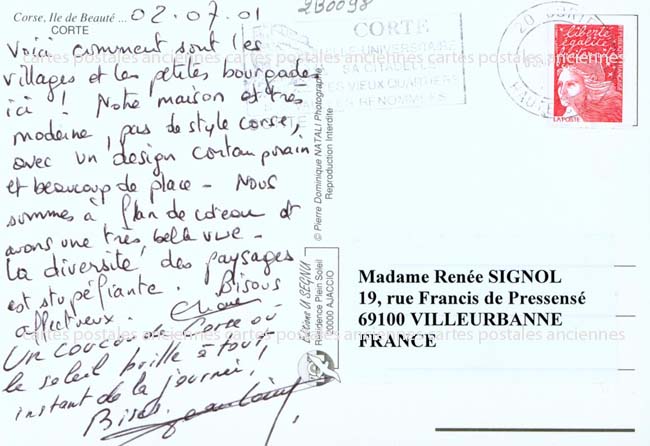 Corse, Ile de Beauté ... 02.07.01
CORTE
Voici comment sont les
villages et les petites bourgades
ici ! Notre maison est très
moderne, pas de style corse,
avec un design contemporain
et beaucoup de place - Nous
sommes à flan de coteau et
avons une très belle vue -
La diversité des paysages
est stupéfiante. Bisous
affectueux.
Un coucou de Corse où
le soleil brille à tout
instant de la journée,
Bises.
2B0098
CORTE
UNIVERSITAIRE
SA CITADELLE
VIEUX QUARTIERS
RENOMMEES
20 CORTE
HAUTE
liberté
égalité
LA POSTE
© Pierre Dominique NATALI Photographe
Reproduction Interdite
Résidence Plein Soleil
20000 AJACCIO
Madame Renée SIGNOL
19, rue Francis de Pressensé
69100 VILLEURBANNE
FRANCE
cartes postales anciennes cartes postales anciennes cartes postales anciennes
cartes postales anciennes cartes postales anciennes cartes postales anciennes